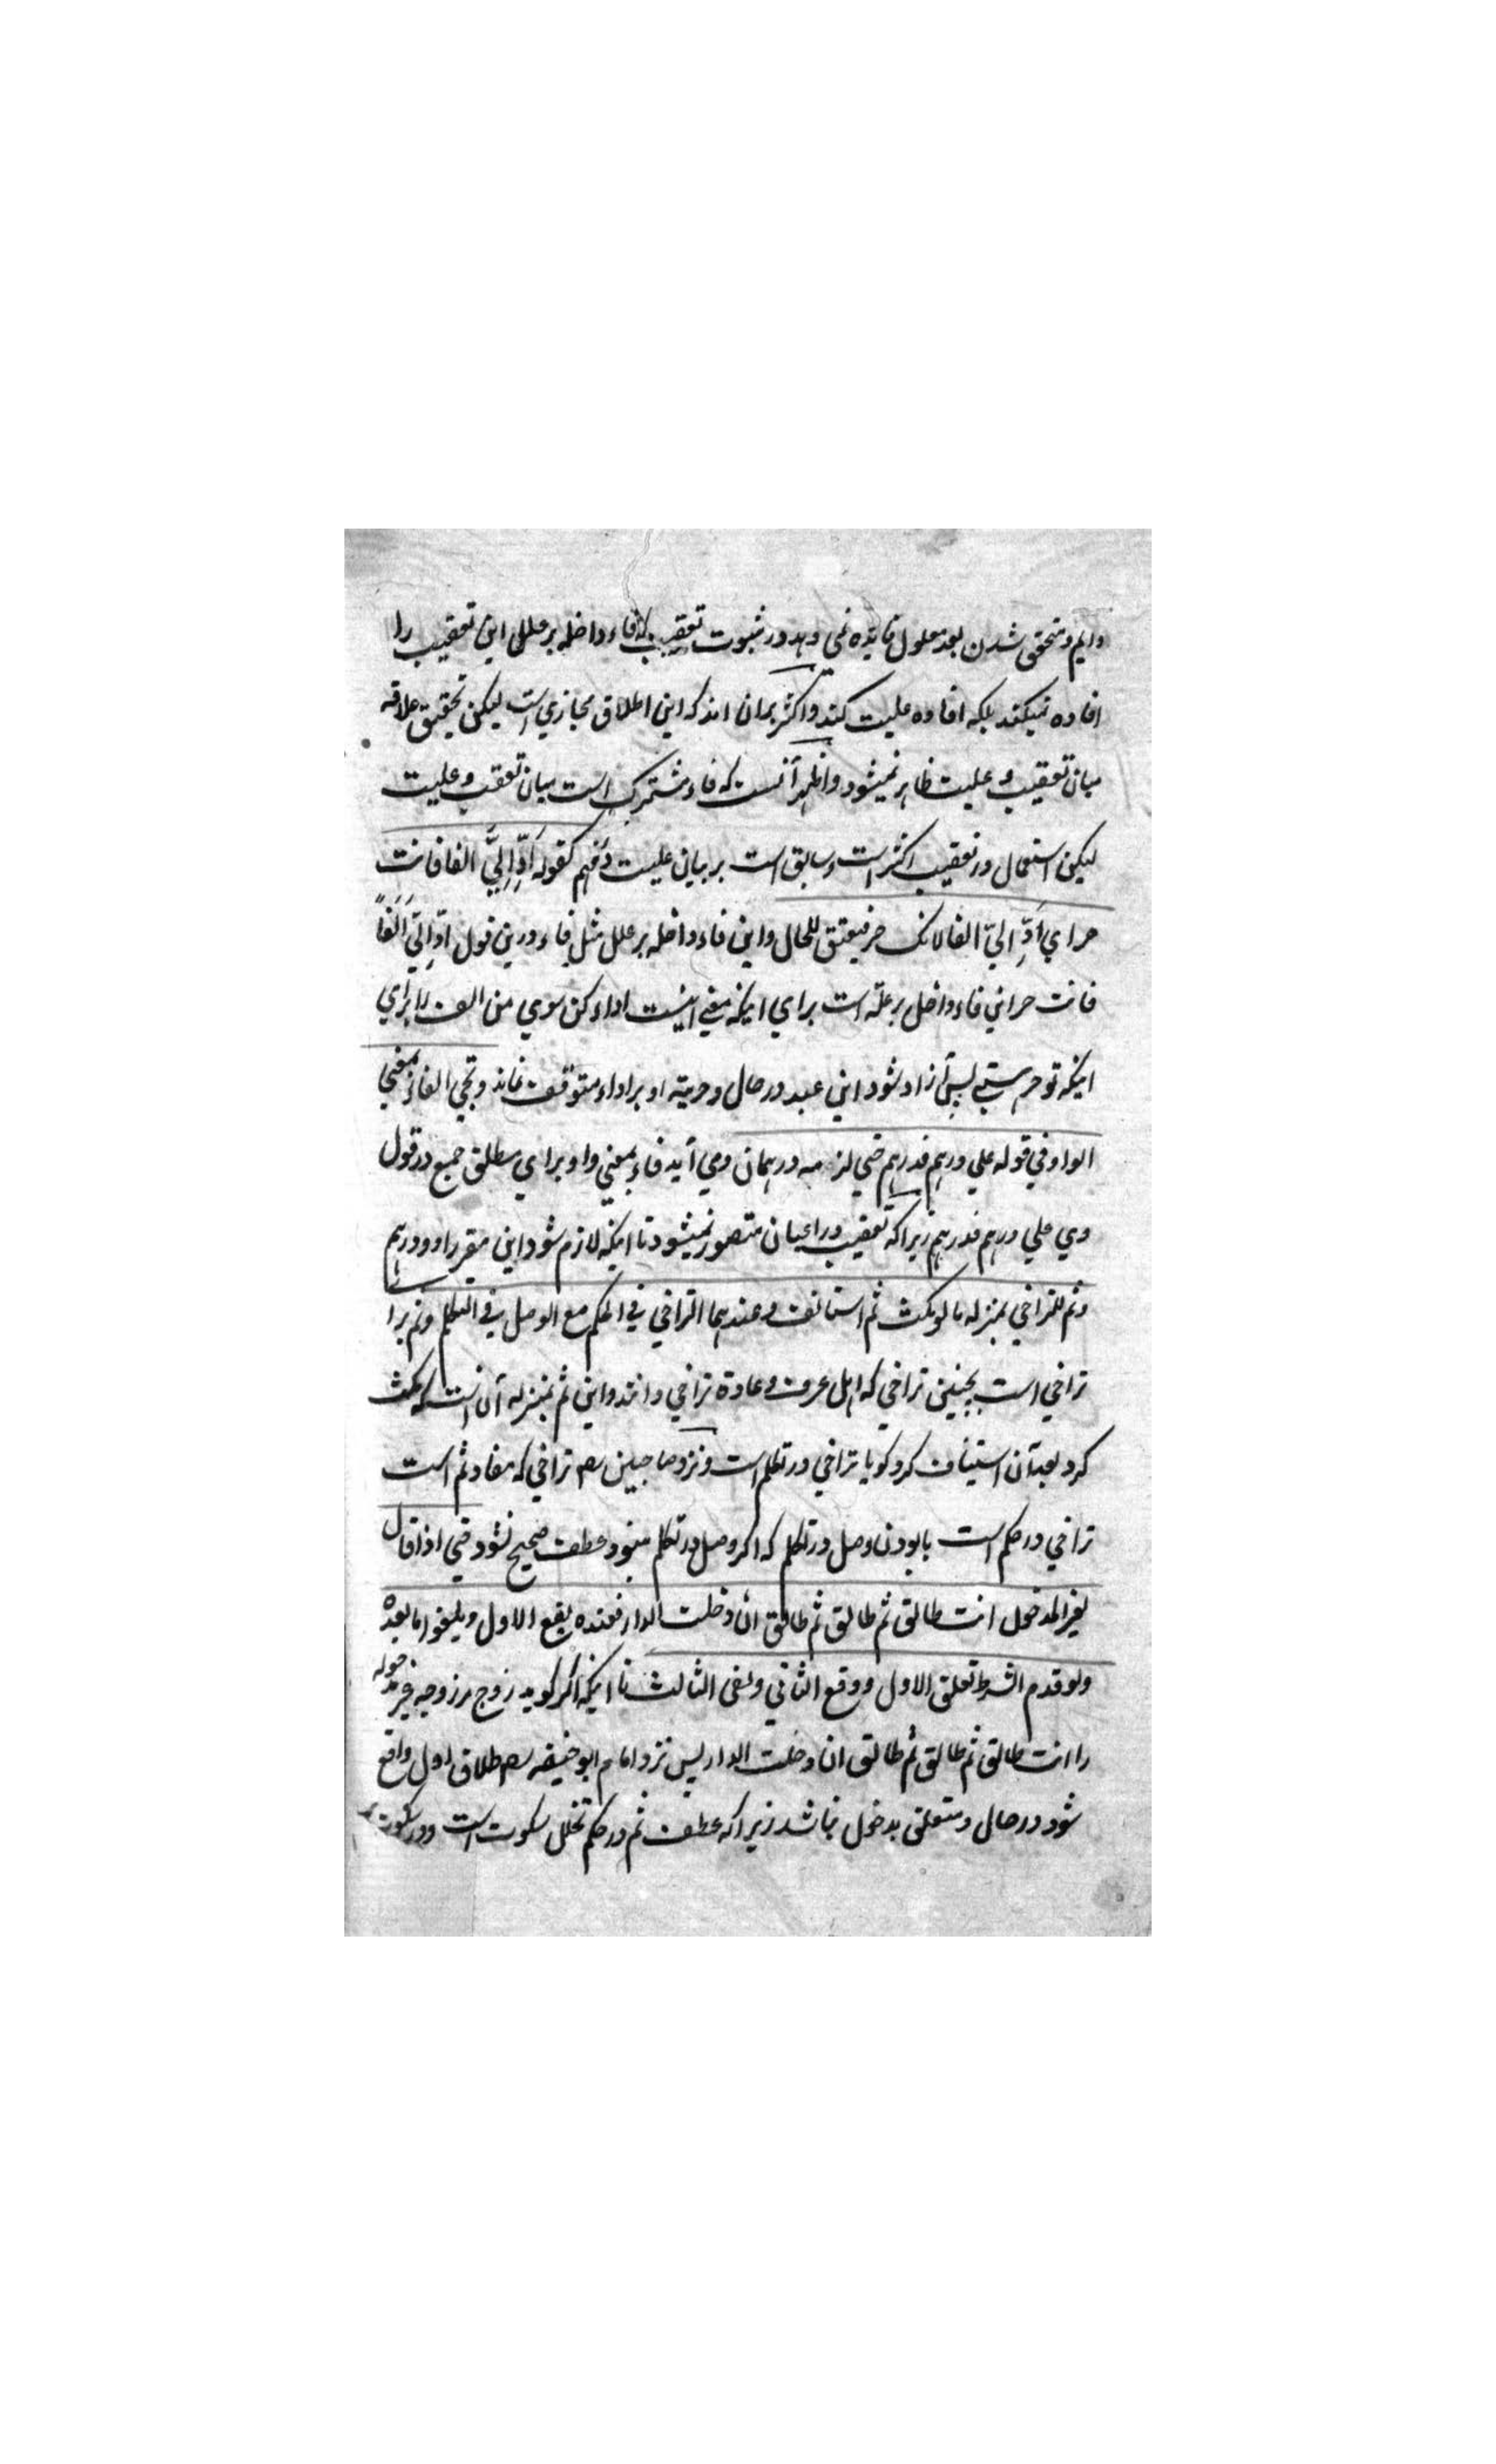 دایم و متحقق شدن بعد معلول فایده نمی دهد در ثبوت تعقیب که فاء داخله بر علل این تعقیب را
افاده نمیکند بلکه افاده علیت کند و اکثر برآن اند که این اطلاق مجازی است لیکن تحقیق علاقه
میان تعقیب و علیت ظاهر نمیشود و اظهر آنست که فاء مشترک است میان تعقیب و علیت
لیکن استعمال در تعقیب اکثر است و سابق است بر بیان علیت در فهم کقوله اَدِّ اِلَیَّ الفا فانت
حر ای اَدِّ الیّ الفا لانک حر فیعتق للحال و این فاء داخله بر علل مثل فاء درین قول ادِّ الیّ اَلْفاً
فانت حر این فاء داخل بر علة است برای اینکه معنی اینست اداء کن سوی من الف را برای
اینکه تو حر هستی پس آزاد شود این عبد در حال و حریته او بر اداء متوقف نماند و تجی الفاء بمعنی
الواو فی قوله علی درهم فدرهم حتی لزمه درهمان و می آید فاء بمعنی واو برای مطلق جمع در قول
وی علی درهم فدرهم زیرا که تعقیب در اعیان متصور نمیشود تا اینکه لازم شود این مقر را دو درهم
و ثم للتراخی بمنزله ما لو سکت ثم استانف و عندهما التراخی فی الحکم مع الوصل فی التکلم و ثم برا
تراخی است بچنین تراخی که اهل عرف و عادة تراخی دانند و این ثم بمنزله آن است که سکت
کرد بعد آن استیناف کرد گویا تراخی در تکلم است و نزد صاحبین رح تراخی که مفاد ثم است
تراخی در حکم است با بودن وصل در تکلم که اگر وصل در تکلم نبود عطف صحیح نشود حتی اذا قال
لغیر المدخول انت طالق ثم طالق ثم طالق ان دخلت الدار فعنده یقع الاول و یلغوا ما بعده
و لو قدم الشرط تعلق الاول و وقع الثانی و لغی الثالث تا اینکه اگر گوید زوج مر زوجه غیر مدخوله
را انت طالق ثم طالق ثم طالق ان دخلت الدار پس نزد امام ابو حنیفه رح طلاق اول واقع
شود در حال و متعلق بدخول نباشد زیرا که عطف ثم در حکم تخلل سکوت است و در سکوت